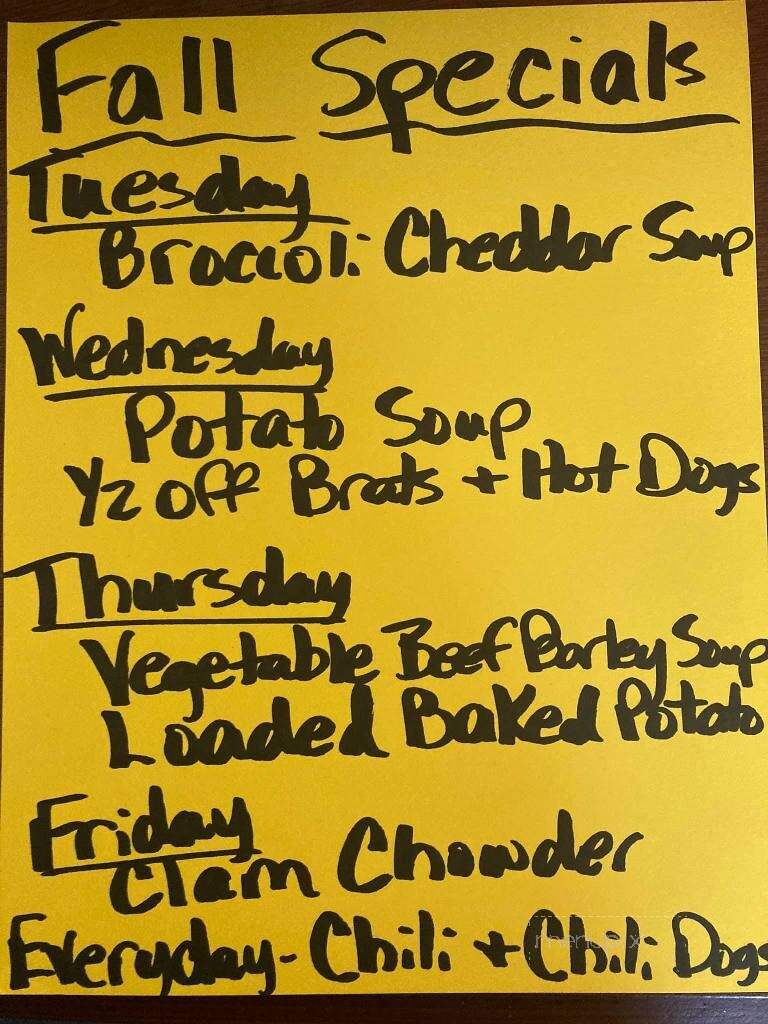 Fall Specials
Tuesday
Broccoli Cheddar Soup
Wednesday
Potato Soup
1/2 off Brats + Hot Dogs
Thursday
Vegetable Beef Barley Soup
Loaded Baked Potato
Friday
Clam Chowder
Everyday - Chili + Chili Dogs